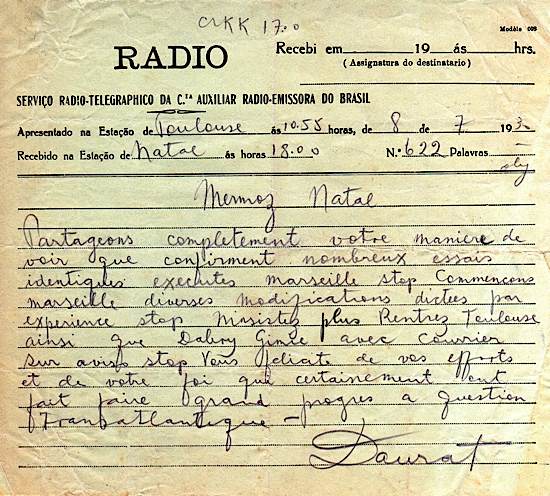 CRKK 17.00
Modêlo 009
RADIO
Recebi em 19 ás hrs.
(Assignatura do destinatario)
SERVIÇO RADIO-TELEGRAPHICO DA C.TA AUXILIAR RADIO-EMISSORA DO BRASIL
Apresentado na Estação de Toulouse ás 10.55 horas, de 8 de 7 1930
Recebido na Estação de Natal ás horas 18.00 N.º 622 Palavras
Mermoz Natal
Partageons completement votre maniere de
voir que confirment nombreux essais
identiques executes marseille stop Commençons
marseille diverses modifications dictees par
experience stop Nasistez plus Rentrez Toulouse
ainsi que Dabry Gimie avec courrier
sur aviso stop Vous felicite de vos efforts
et de votre foi que certainement ont
fait faire grand progres a question
Transatlantique —
Daurat